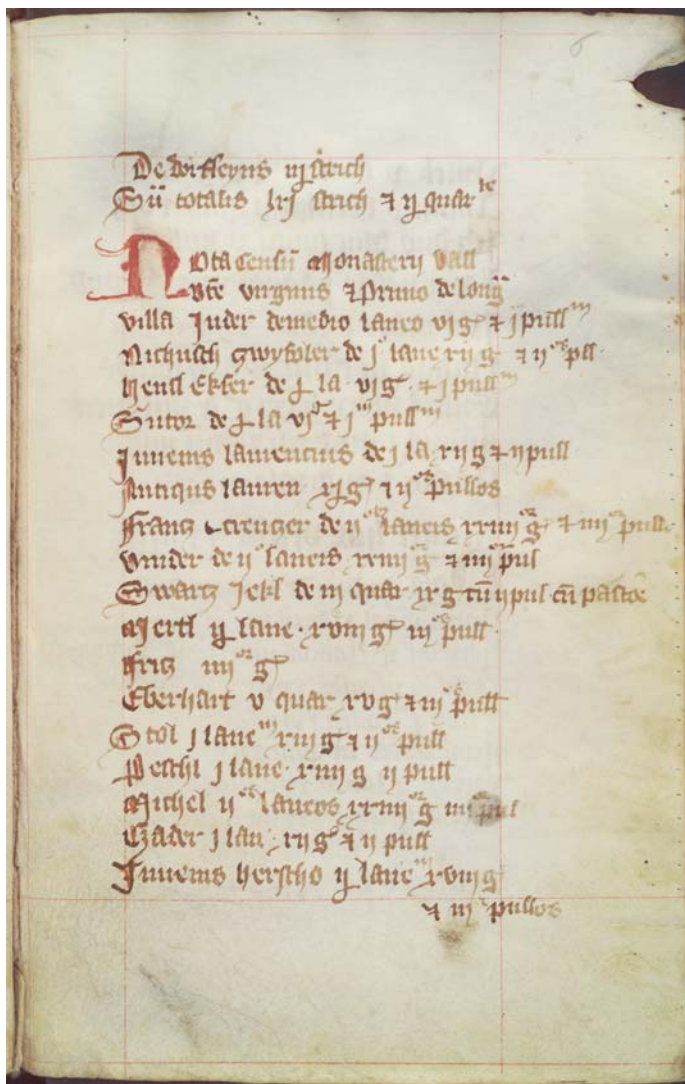 De dorffeyns iij strich
Sū totalis lxj strich & ij quar
Nota censū Monasterij Vall
vtē virginis & Primo de long
villa Juder de medio laneo vj g & j pull m
Nichusch de j lane xij g & ij pll
hensl Ekser de la vj g & j pull m
Sutor de la vj g & j m pull m
Juuenis laurencius de j la xij g & ij pull
Antiqus lauren xj g & ij os pullos
frantz creutzer de ij laneis xxiiij g & iiij pull
vnider de ij laneis xxiiij g & iiij pul
Swartz Jekl de iij quar ix g cū ij pul cū pastōe
Mertl lane xviij g iij pull
fritz iiij or g
Eberhart v quar xv g & iij pull
Stol j lane m xiij g & ij pull
Peschl j lane xiiij g ij pull
Michel ij laneos xxiiij g iiij pul
Czader j lan xij g & ij pull
Juuenis herscho lane m xviij g
& iij pullos